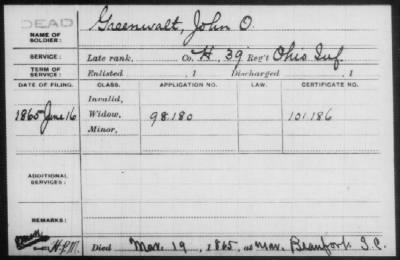 DEAD
NAME OF SOLDIER: Greenwalt, John O.
SERVICE: Late rank, Co. H, 39 Reg't Ohio Inf.
TERM OF SERVICE: Enlisted , 1 Discharged , 1
DATE OF FILING. CLASS. APPLICATION NO. LAW. CERTIFICATE NO.
Invalid,
1865 June 16 Widow, 98.180 101.186
Minor,
ADDITIONAL SERVICES:
REMARKS:
Died Mar. 19, 1865, at Beaufort S.C.